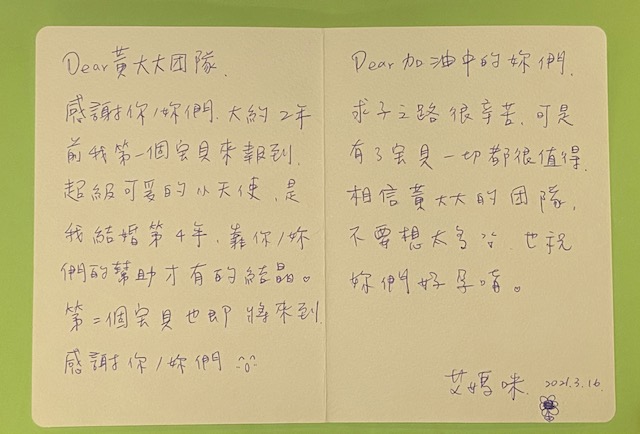 Dear 黃大大团隊.
感謝你/妳們. 大約2年
前我第一個宝貝來報到.
超級可爱的小天使, 是
我結婚第4年, 靠你/妳
們的幫助才有的結晶。
第二個宝貝也即將來到.
感謝你/妳們
Dear 加油中的妳們.
求子之路很辛苦, 可是
有了宝貝一切都很值得.
相信黃大大的团隊,
不要想太多, 也祝
妳們好孕唷。
艾媽咪. 2021.3.16.